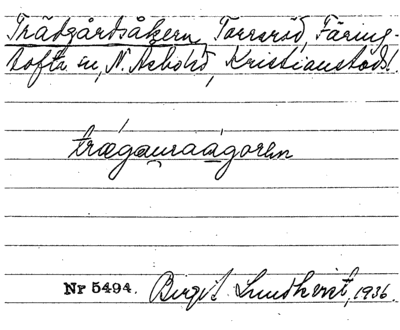 Trädgårdsåkern, Torraröd, Färing-
tofta sn, N. Åsbo hd, Kristianstads l.
trægauraágoren
Nr 5494. Birgit Lundkvist, 1936.